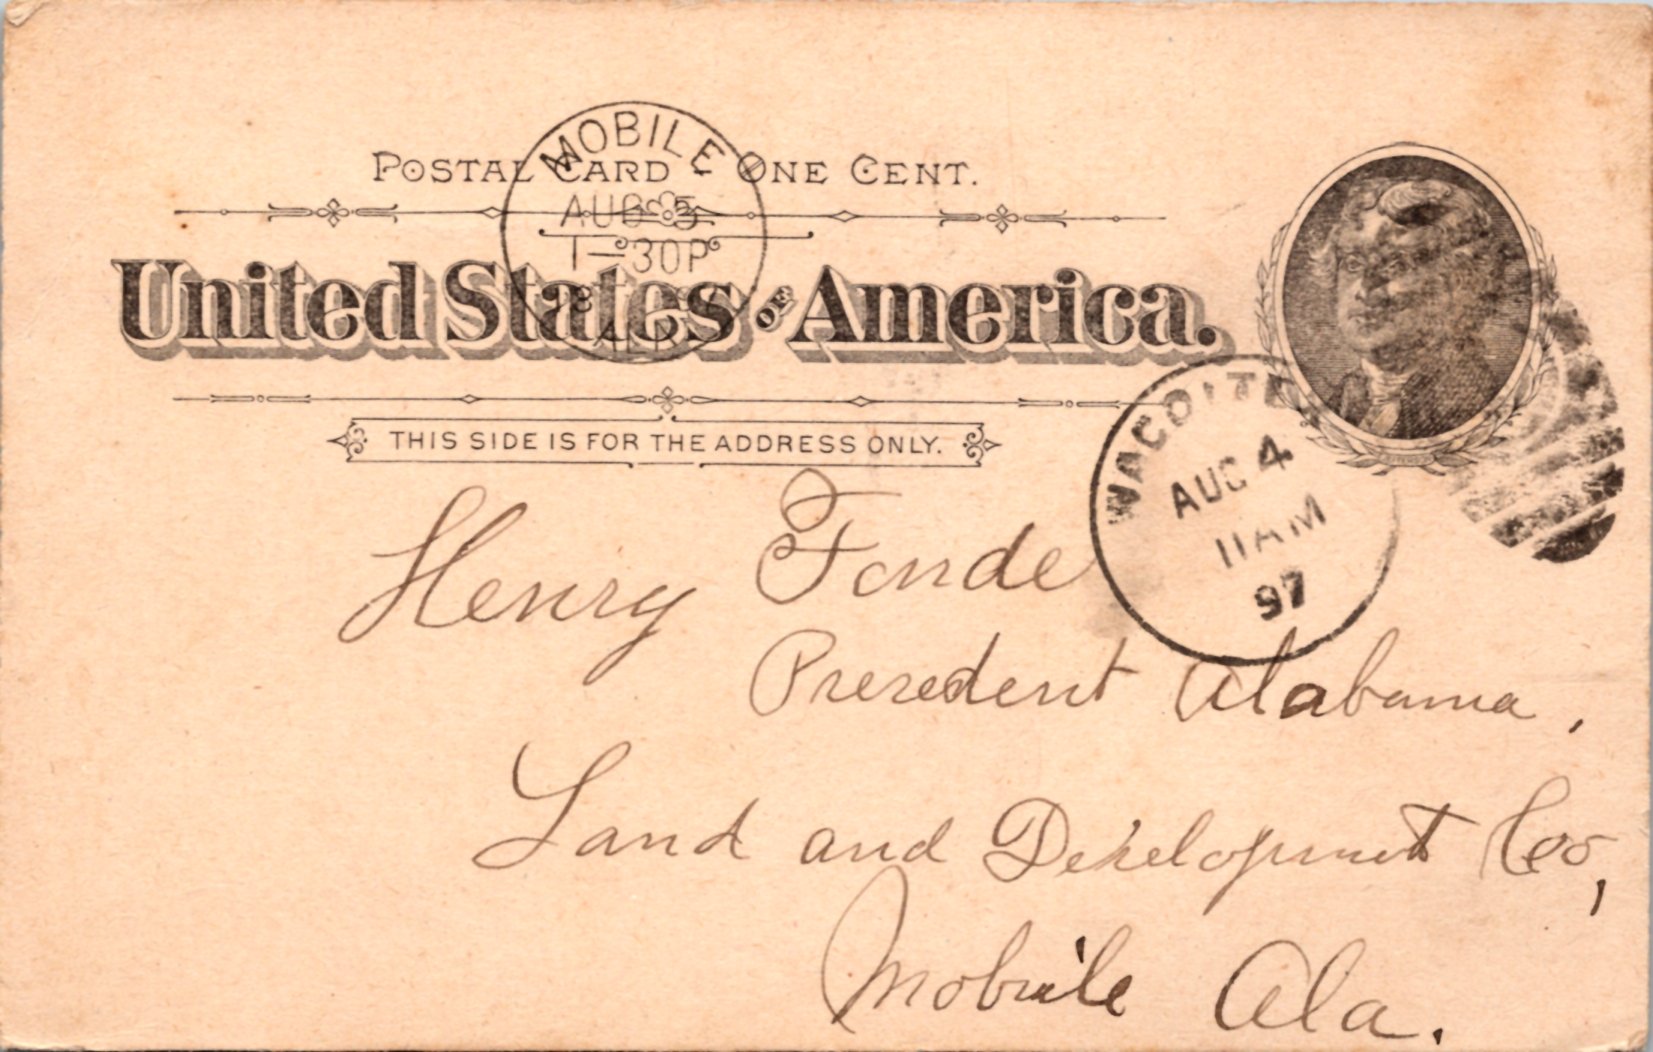 MOBILE
POSTAL CARD - ONE CENT.
AUG 5
1-30P
United States of America.
ALA.
THIS SIDE IS FOR THE ADDRESS ONLY.
AUG 4
11 AM
97
Henry Fonde
President Alabama,
Land and Development Co,
Mobile Ala.